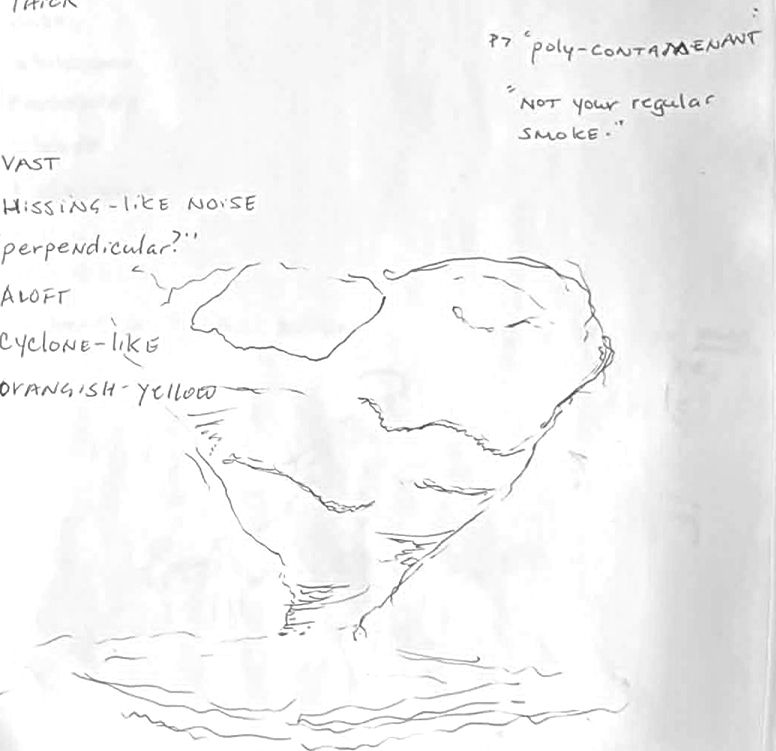 THICK
P7 "poly-CONTAMENANT
"NOT your regular
SMOKE."
VAST
HISSING-LIKE NOISE
perpendicular?"
ALOFT
CYCLONE-LIKE
ORANGISH-YELLOW